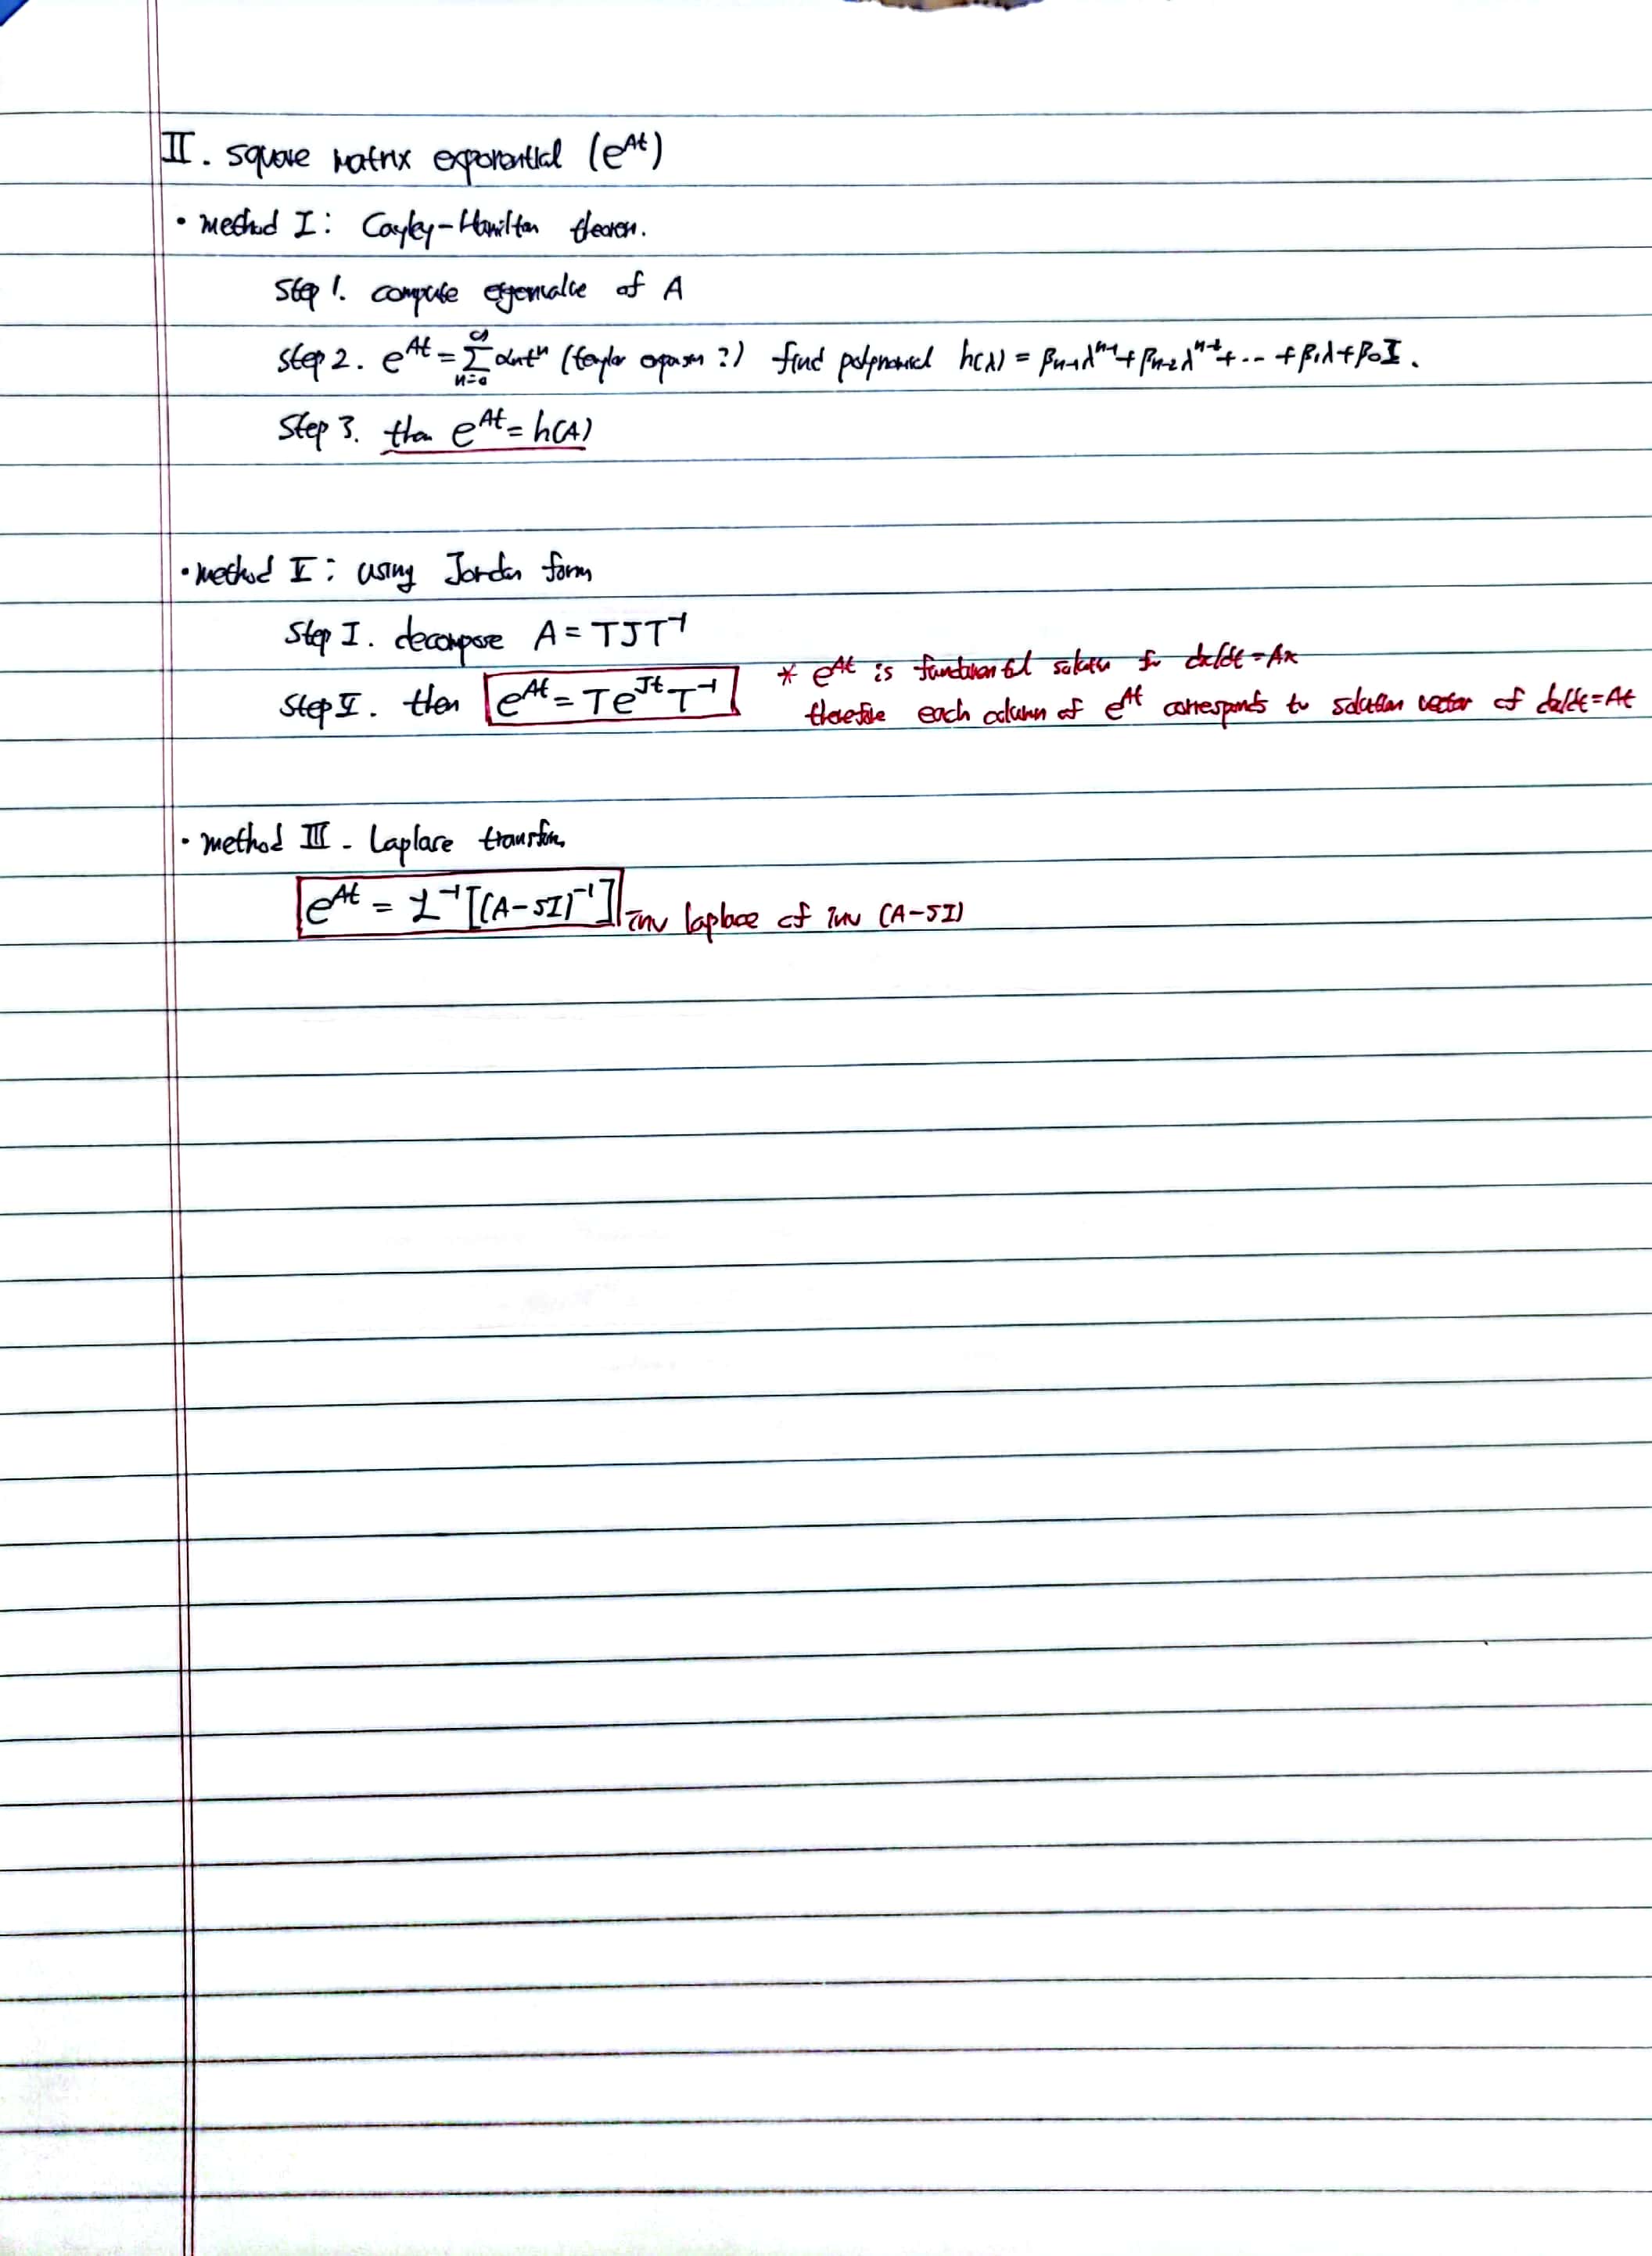 II. square matrix exponential (e^At)
• method I: Cayley-Hamilton theorem.
Step 1. compute eigenvalue of A
Step 2. e^At = ∑_{n=0}^{∞} αₙtⁿ (taylor expansion?) find polynomial h(λ) = βₙ₋₁λ^{n-1} + βₙ₋₂λ^{n-2} + ... + β₁λ + β₀I.
Step 3. then e^At = h(A)
• method II: using Jordan form
Step I. decompose A = TJT⁻¹
* e^At is fundamental solution for dx/dt = Ax
Step II. then e^At = Te^{Jt}T⁻¹
therefore each column of e^At corresponds to solution vector of dx/dt = At
• method III - Laplace transform
e^At = ℒ⁻¹[(A-SI)⁻¹] inv laplace of inv (A-SI)